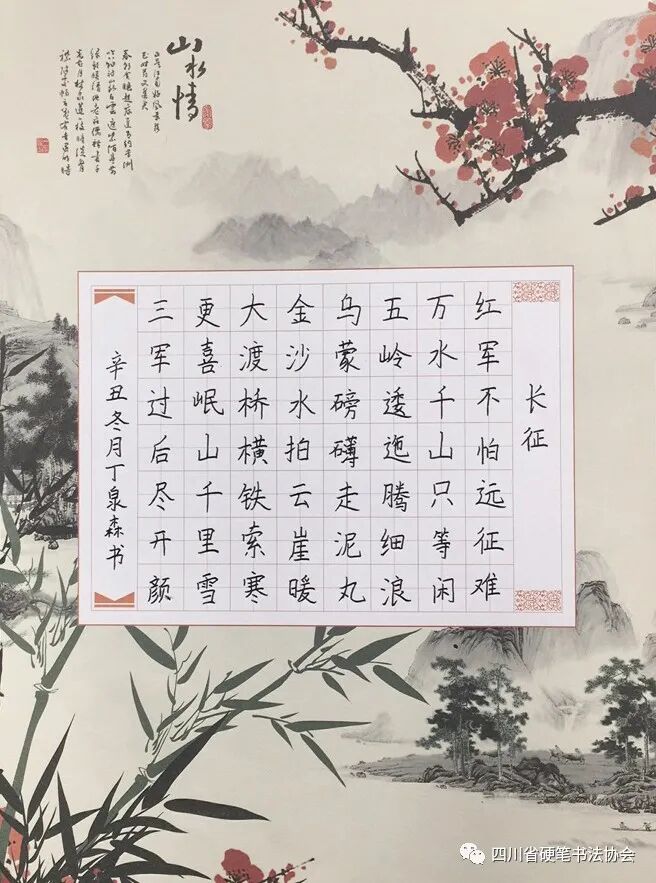 山水情
长征
红军不怕远征难
万水千山只等闲
五岭逶迤腾细浪
乌蒙磅礴走泥丸
金沙水拍云崖暖
大渡桥横铁索寒
更喜岷山千里雪
三军过后尽开颜
辛丑冬月丁泉森书
四川省硬笔书法协会